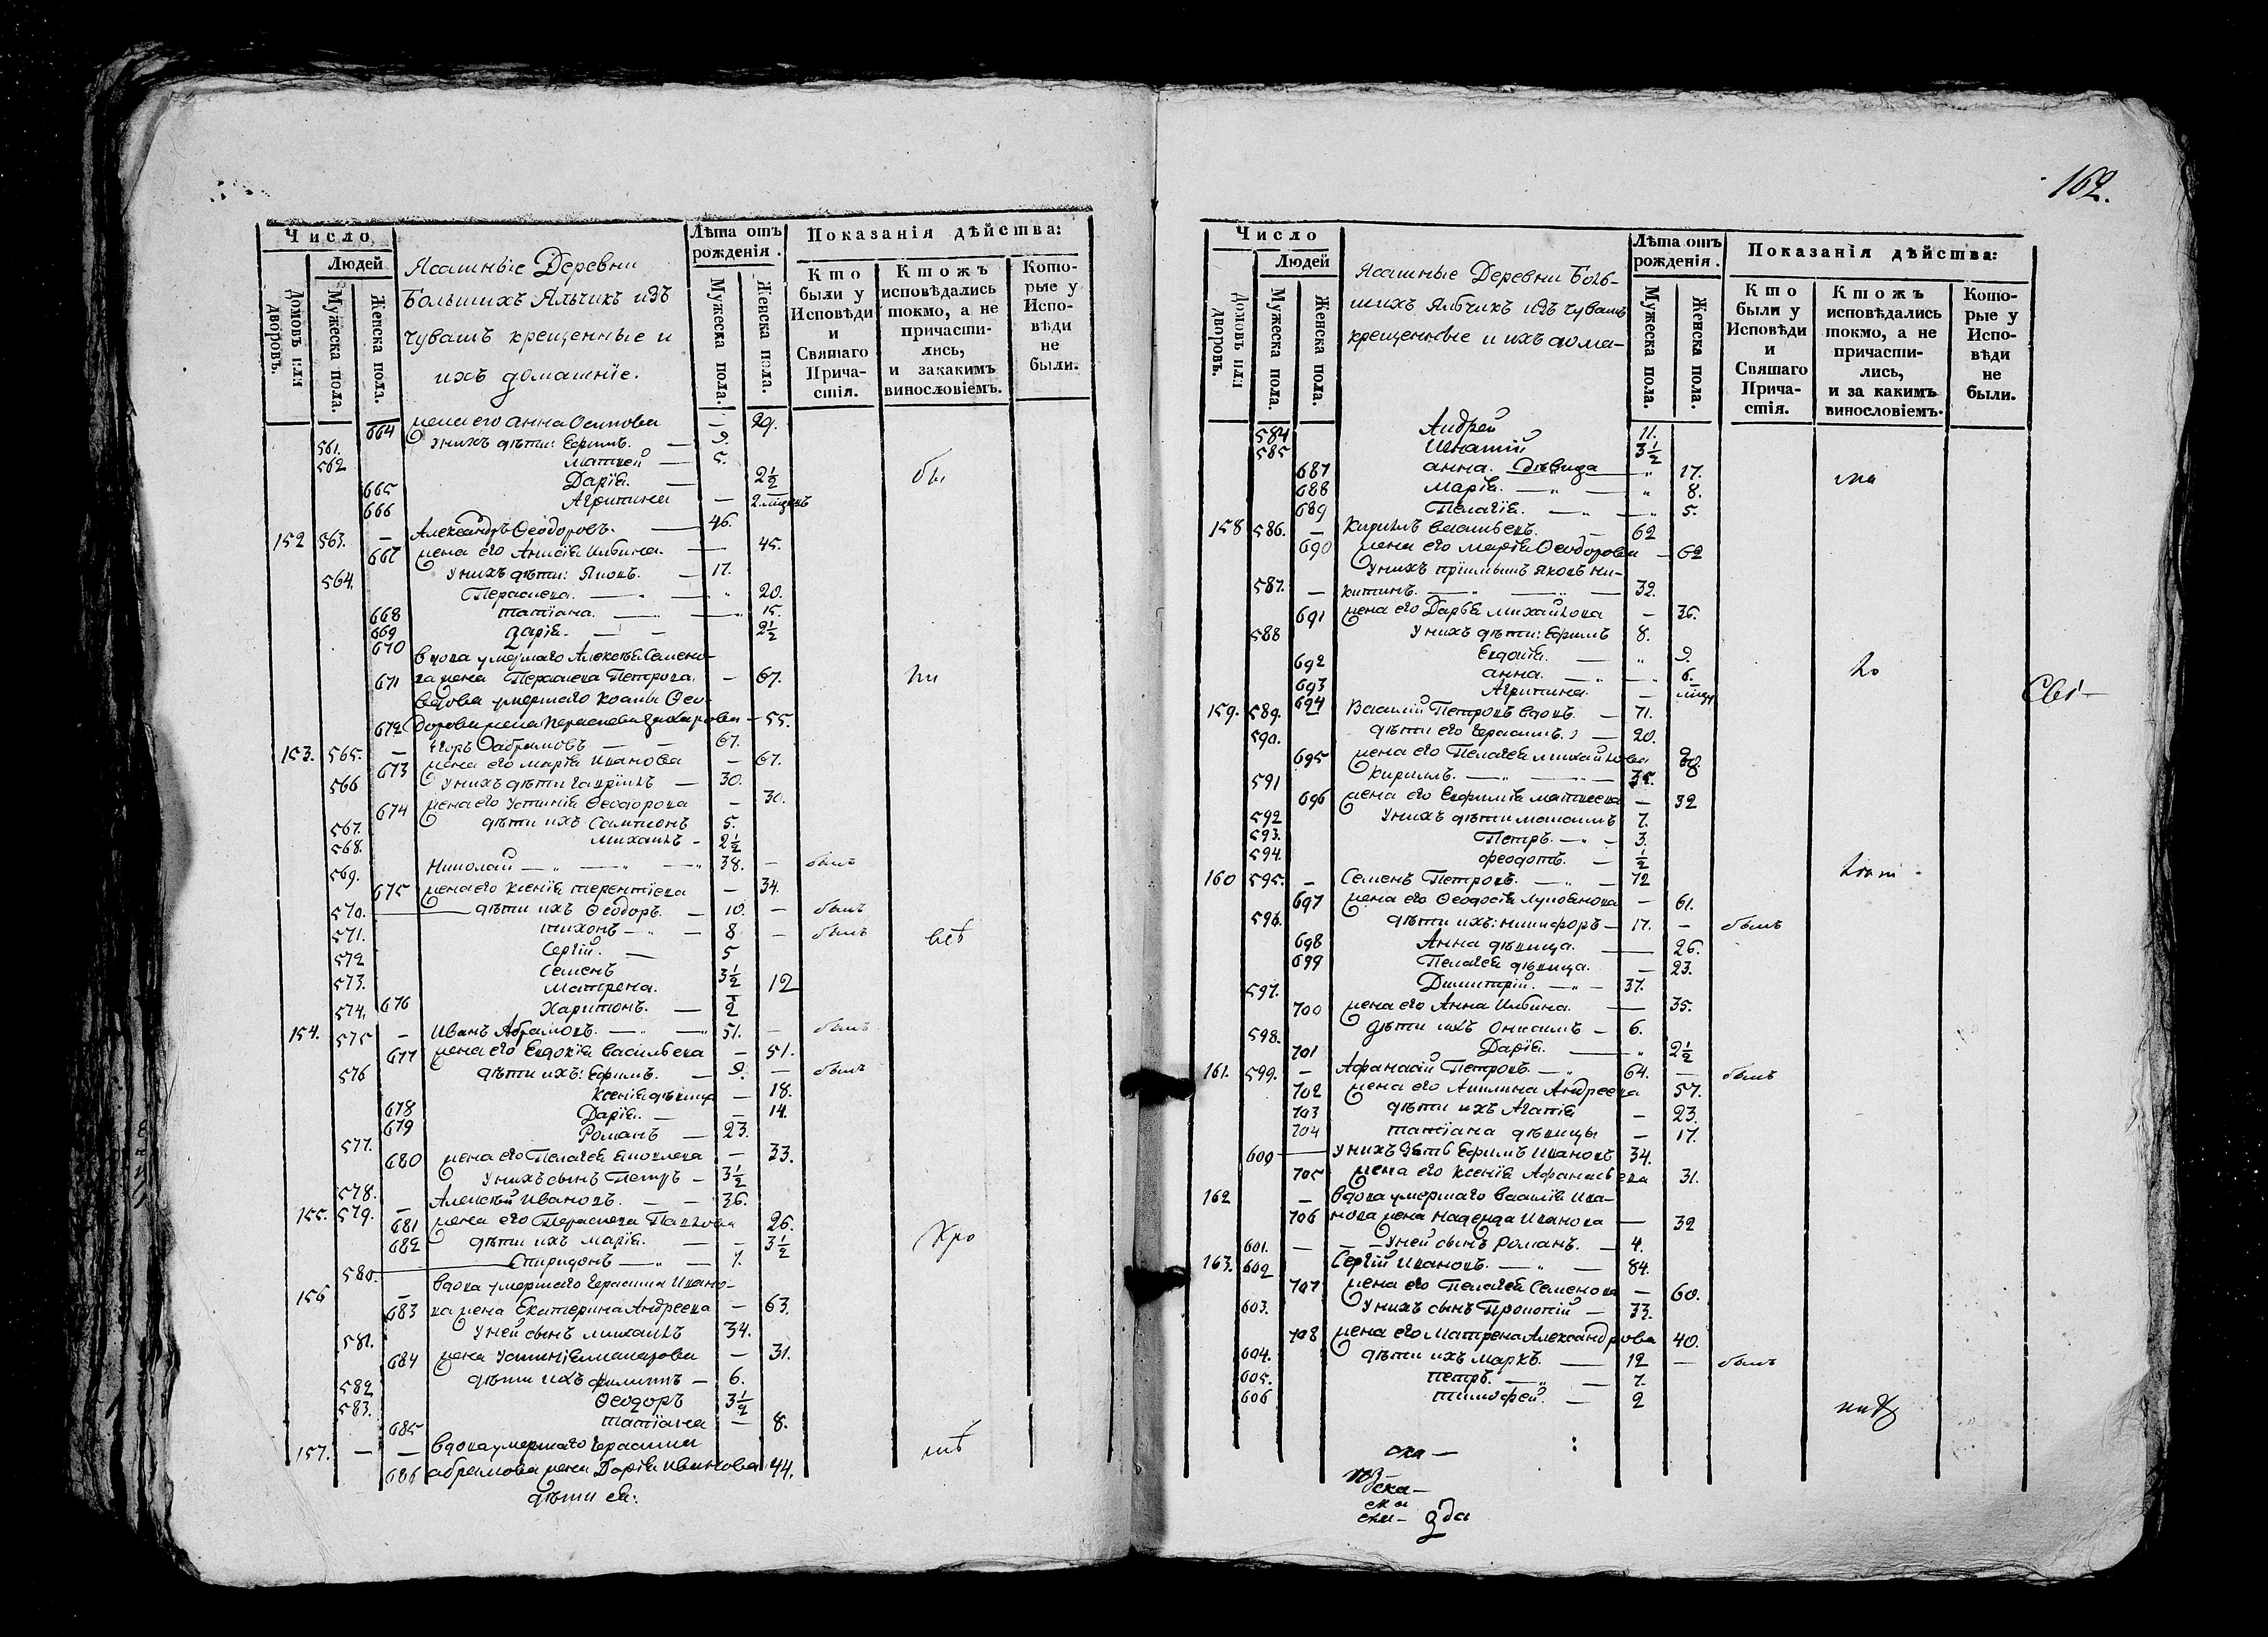 Число
Людей
Домовъ или дворовъ.
Мужеска пола.
Женска пола.
Ясашные Деревни
Большихъ Яльчикъ изъ
чувашъ крещенные и
ихъ домашніе.
Лѣта отъ рожденія.
Мужеска пола.
Женска пола.
Показанія дѣйства:
Кто были у Исповѣди и Святаго Причастія.
Ктожъ исповѣдались токмо, а не причастились, и закакимъ винословіемъ.
Которые у Исповѣди не были.
664 жена его Анна Осипова — 29.
561. у нихъ дѣти: Ефимъ. — 9.
562 Матвей — 5.
665 Дарія. — 2½
бы
666 Агрипина — 2. мѣсяцовъ
152 563. — Александръ Ѳеодоровъ. — 46.
667 жена его Анисія Ильина. — 45.
564. у нихъ дѣти: Яковъ. — 17.
Пераскева. — 20.
668 татіана. — 15.
669 Дарія. — — 2½
670
вдова умершаго Алексѣя Семено-
671 ва жена Пераскева Петрова. — 67.
ли
вдова умершаго Козмы Ѳео-
672 дорова жена Пераскева Захарова — 55.
153. 565. — Егоръ Абрамовъ — — 67.
673 жена его Марія Иванова — 67.
566 у нихъ дѣти Гаврилъ — 30.
674 жена его Устинія Ѳеодорова — 30.
567. дѣти ихъ Сампсонъ 5.
568. Михаилъ - 2½
569. Николай — 38. — былъ
675 жена его Ксенія терентіева — 34.
570. дѣти ихъ Ѳеодоръ. — 10. — былъ
571. тихонъ — 8 — былъ
всѣ
572 Сергій. — 5
573. Семенъ 3½
676 Матрена. — 12
574. Харитонъ. — 2
154. 575 — Иванъ Абрамовъ. — 51. — былъ
677 жена его Евдокія Васильева — 51.
576 дѣти ихъ: Ефимъ. — 9. — былъ
Ксенія дѣвица — 18.
678 Дарія. — — 14.
679
577. Романъ — 23.
680 жена его Пелагея Яковлева — 33.
у нихъ сынъ Петръ — 3½
578.
155. 579. — Алексѣй Ивановъ. — — 36.
681 жена его Пераскева Павлова 26.
682 дѣти ихъ Марія. — — 3½
кро
580. Спиридонъ — 7.
156 — вдова умершаго Герасима Ивано-
683 ва жена Екатерина Андреева — 63.
581. у ней сынъ Михаилъ 34.
684 жена Устинія Макарова — 31.
582 дѣти ихъ филиппъ — 6.
583. Ѳеодоръ 3½
685 татіана — 8.
157. — — вдова умершаго Герасима
мѣ
686 абрамова жена Дарія Иванова 44.
дѣти ея:
162.
Число
Людей
Домовъ или дворовъ.
Мужеска пола.
Женска пола.
Ясашные Деревни Боль-
шихъ Яльчикъ изъ чувашъ
крещенные и ихъ дома-
Лѣта отъ рожденія.
Мужеска пола.
Женска пола.
Показанія дѣйства:
Кто были у Исповѣди и Святаго Причастія.
Ктожъ исповѣдались токмо, а не причастились, и за какимъ винословіемъ.
Которые у Исповѣди не были.
584 Андрей 11.
585 Игнатій 3½
687 анна. Дѣвица — 17.
ма
688 Марія. — 8.
689 Пелагія. — 5.
158 586. — Кирилъ Васильевъ. — 62
690 жена его Марія Ѳеодорова — 62
у нихъ пріимышъ Яковъ Ни-
587. — китинъ. — 32.
691 жена его Дарья Михайлова — 36.
588 у нихъ дѣти: Ефимъ 8.
692 Евдокія. — 9.
ло
693 анна. — 6.
694 Агрипина. —
159. 589. — Василій Петровъ вдовъ. — 71.
590. дѣти его Герасимъ. — 20.
695 жена его Пелагея Михайлова
591 Кирилъ. — 35.
696 жена его Евфимія Матвеева — 32
592 у нихъ дѣти 7.
593. Петръ. — 3.
594. феодотъ. — ½
160 595. — Семенъ Петровъ. — 72
697 жена его Ѳеодосія Лукоянова — 61.
596. дѣти ихъ: Никифоръ — 17. — былъ
698 Анна дѣвица. — 26.
699 Пелагея дѣвица. — 23.
597. Димитрій. — 37.
700 жена его Анна Ильина. — 35.
598. дѣти ихъ Онисимъ — 6.
701 Дарія. — 2½
161. 599. — Афанасій Петровъ. — 64. — былъ
702 жена его Акилина Андреева 57.
703 дѣти ихъ Агапія — 23.
704 татіана дѣвицы — 17.
600 — у нихъ зять Ефимъ Ивановъ 34.
705 жена его Ксенія Афанасьева 31.
162 — вдова умершаго Василія Ива-
706 нова жена Надежда Иванова — 32
601. — — у ней сынъ Романъ. — 4.
163. 602 Сергій Ивановъ. — 84.
707 жена его Пелагея Семенова — 60.
603. у нихъ сынъ Прокопій — 33.
708 жена его Матрена Александрова 40.
604. дѣти ихъ Маркъ. — 12 — былъ
605. петръ. — 7.
606 тимофей. — 2